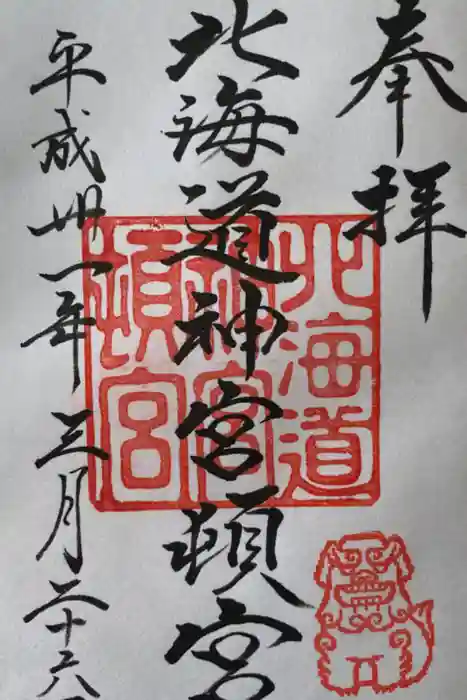 奉拝
北海道神宮頓宮
平成卅一年三月二十六
北海道
神宮
頓宮